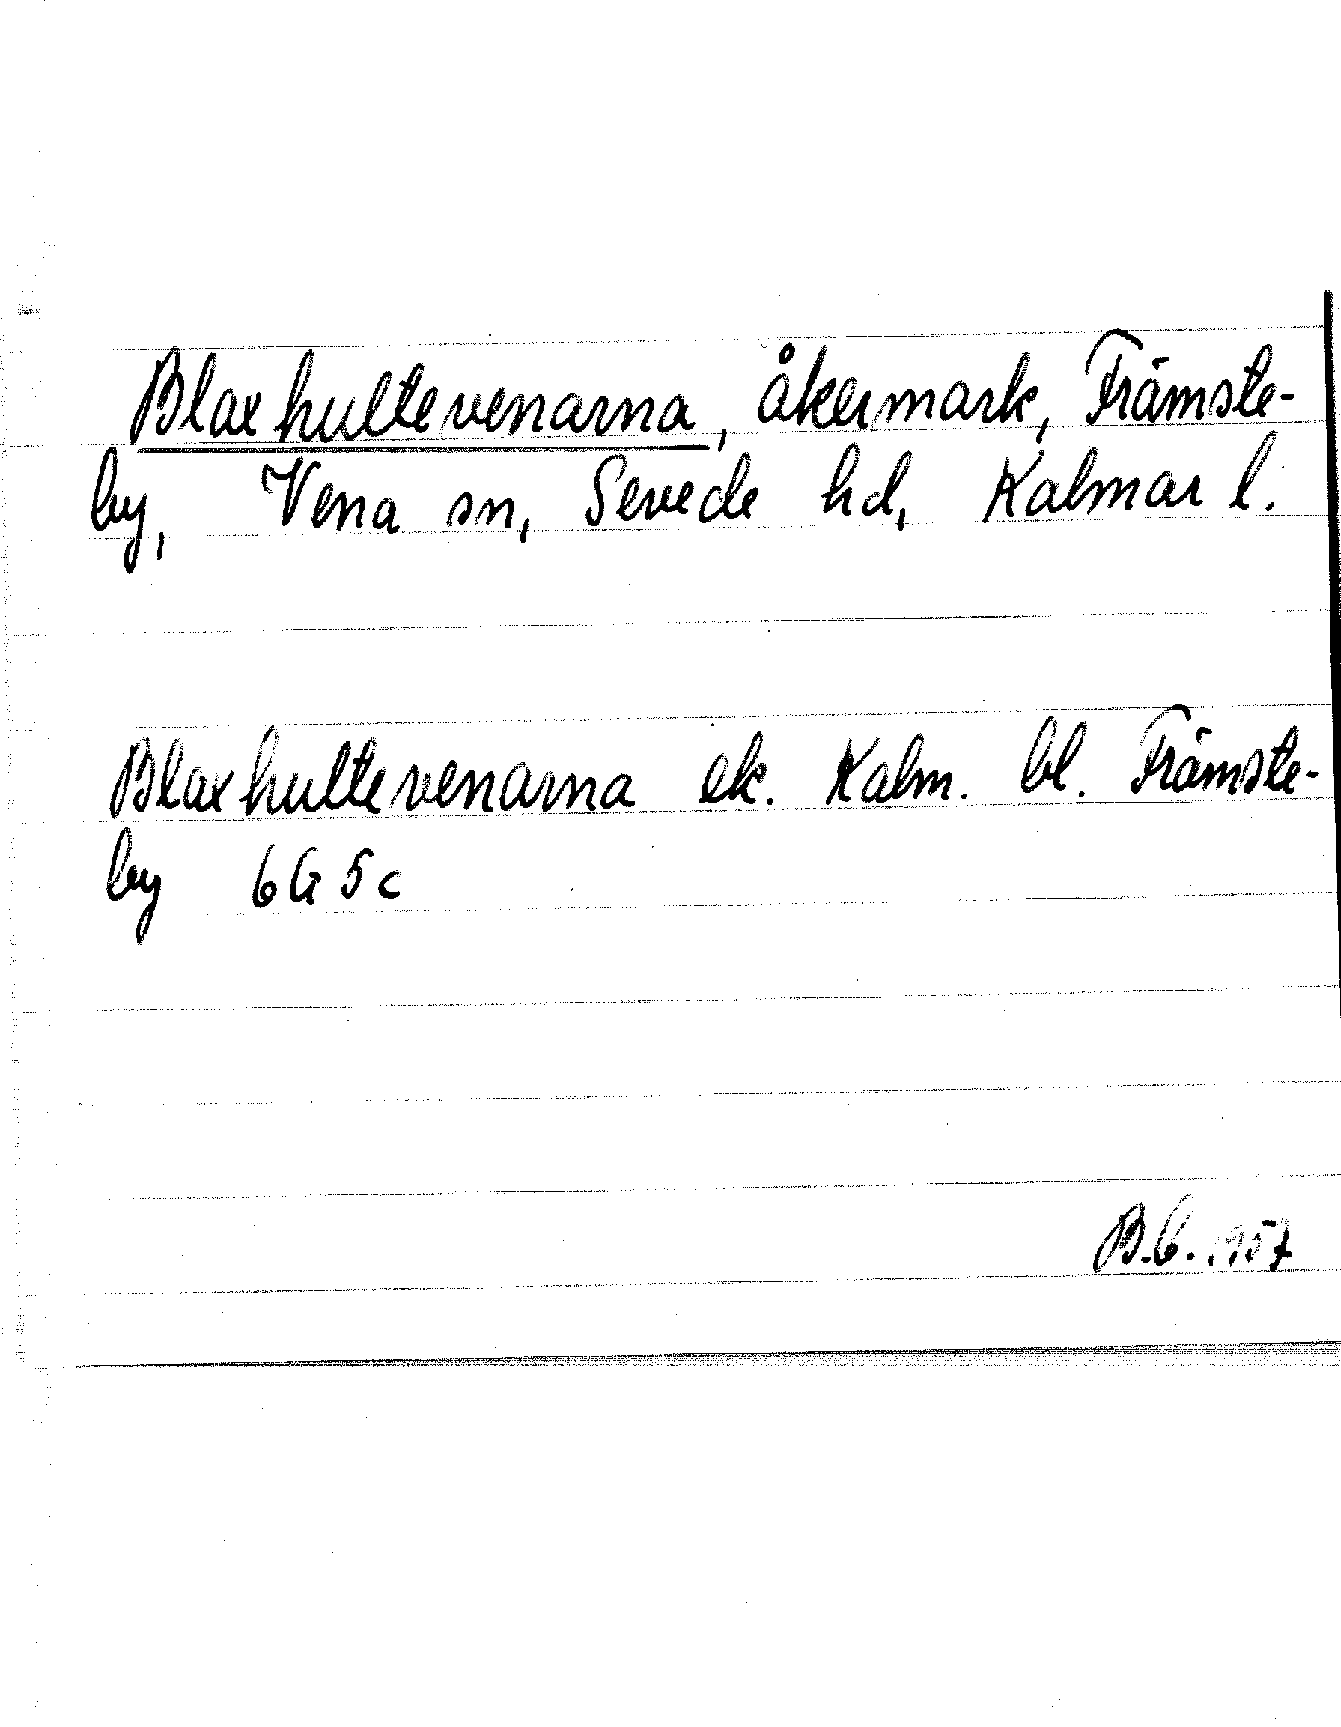 Blaxhultevenarna, åkermark, Främste-
by, Vena sn, Sevede hd, Kalmar l.
Blaxhultevenarna ek. Kalm. bl. Främste-
by 6G 5c
B.C. 1957